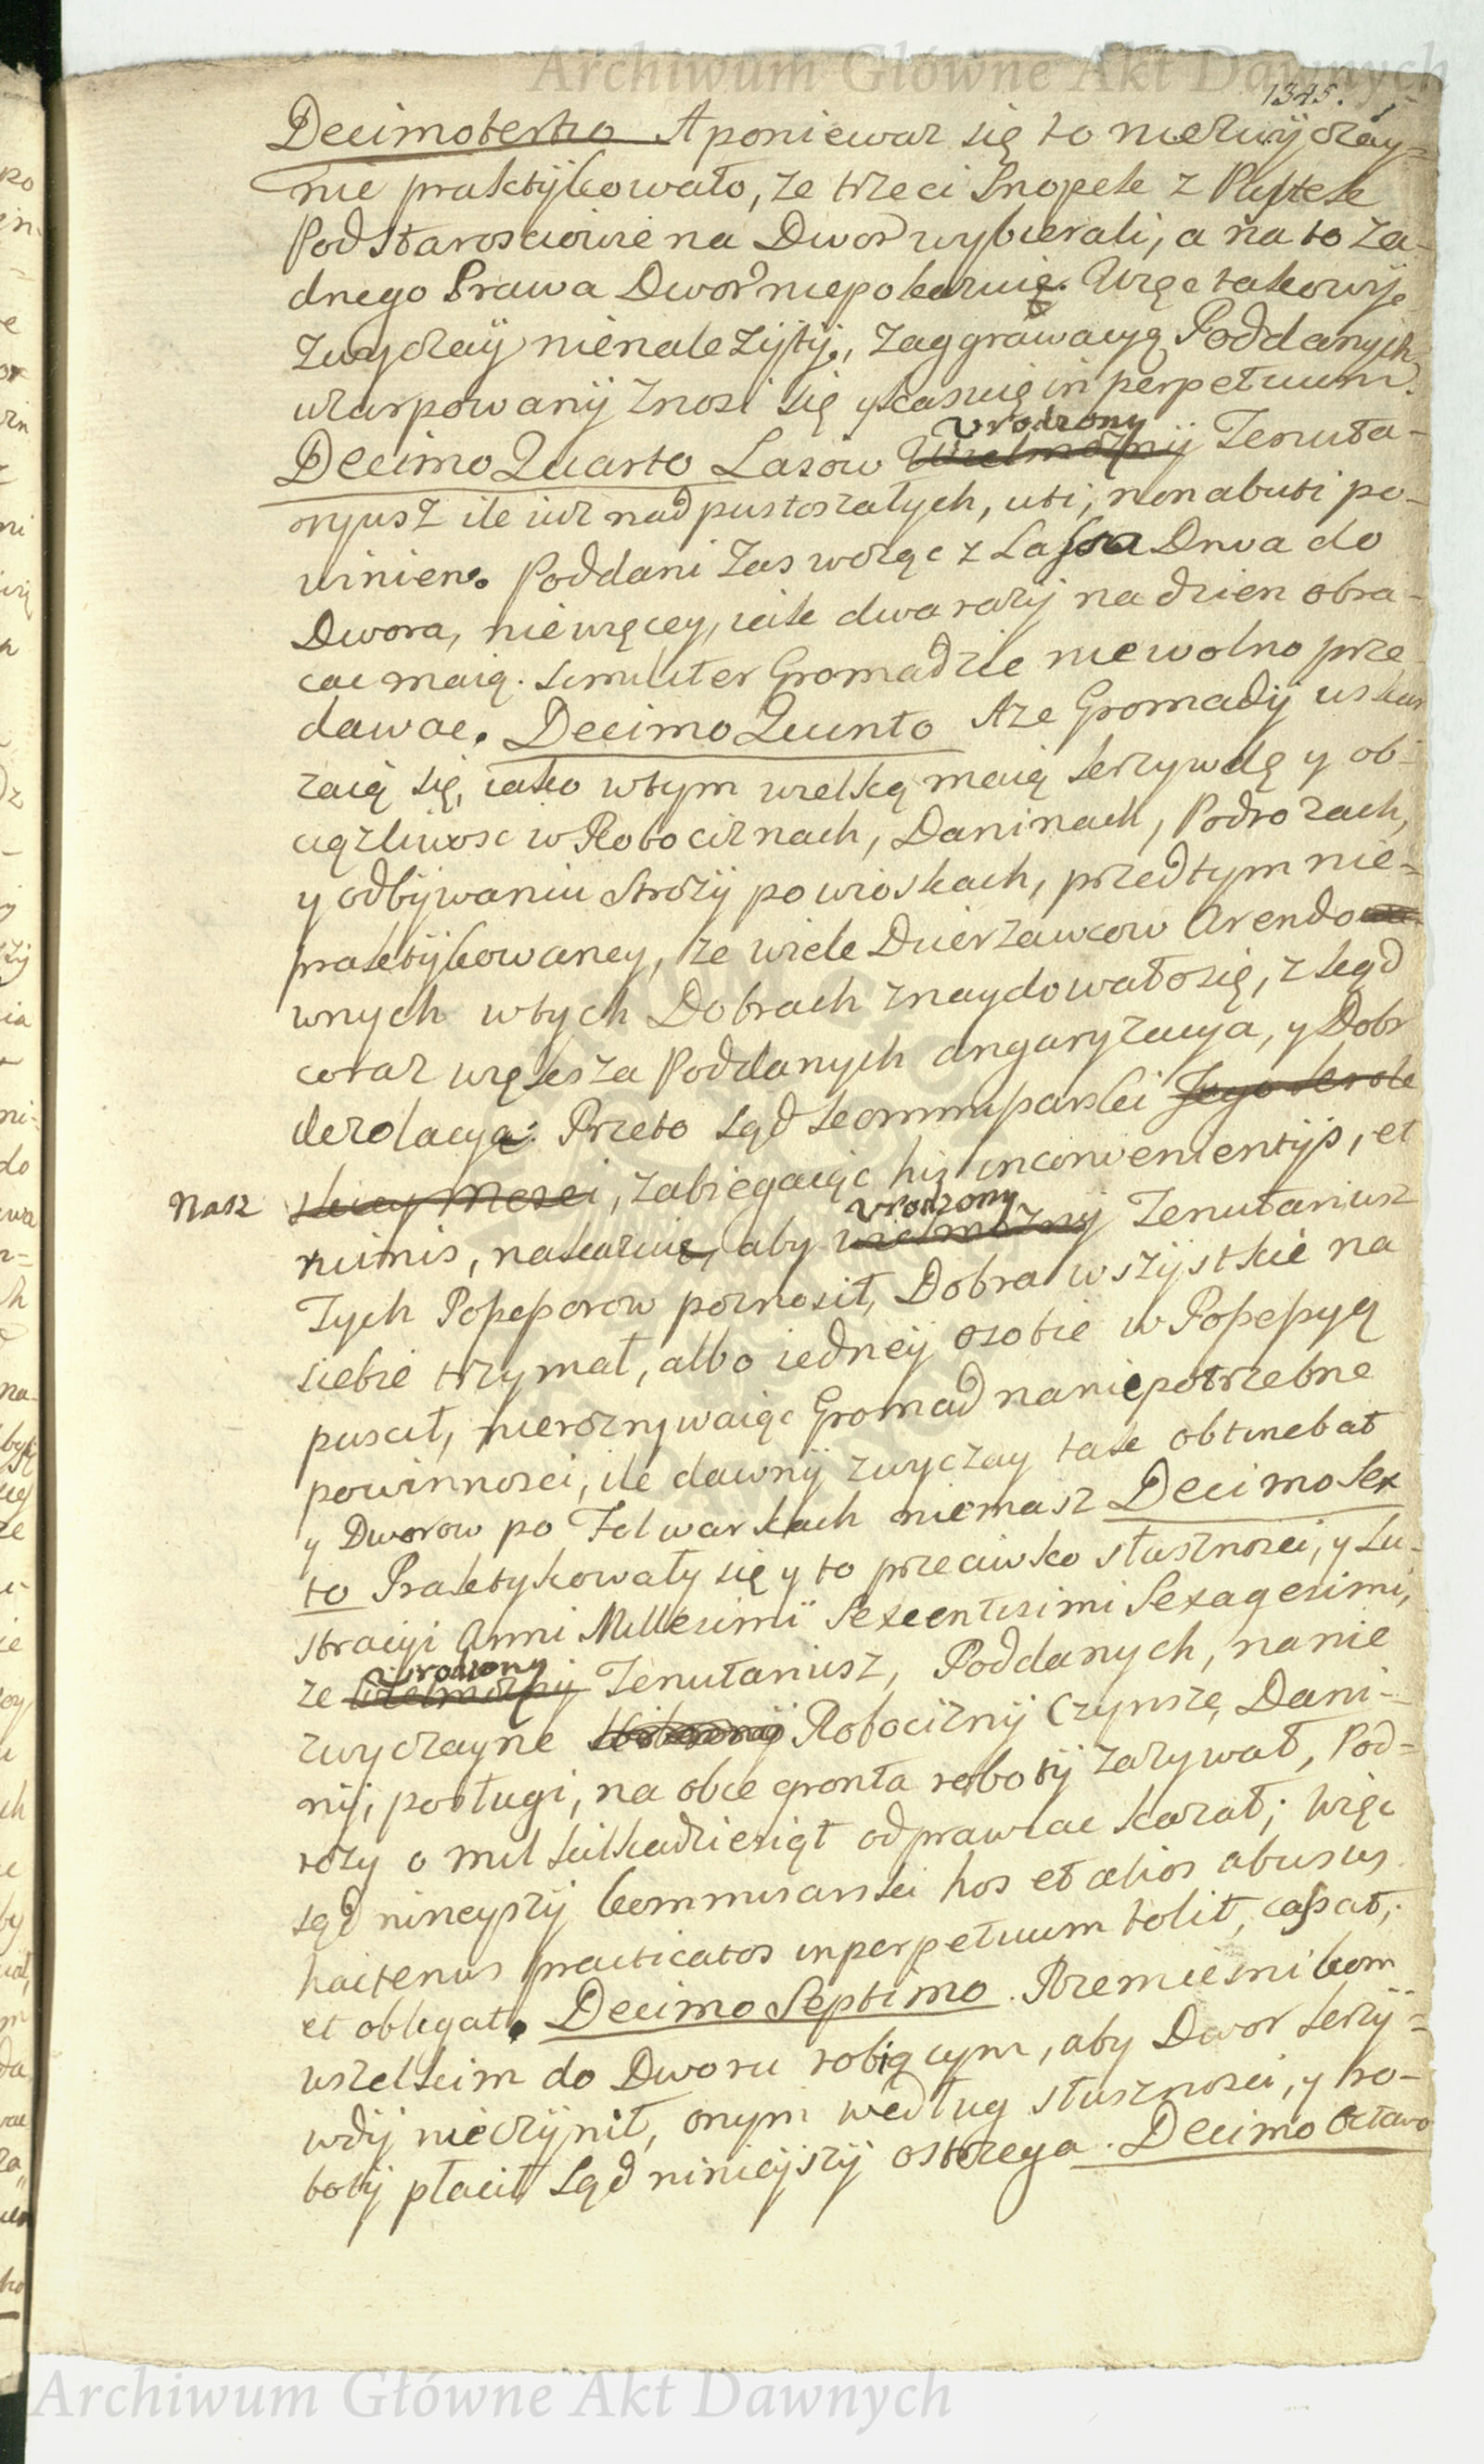 Archiwum Główne Akt Dawnych
1345.
Decimotertio Aponiewaz się to niezwyczay=
nie praktykowało, ze trzeci Snopek z Pustek
Podstarosciowie na Dwor wybierali, a na to za-
dnego Prawa Dwor niepokazuię. Więc takowy
zwyczay nienalezyty, z aggrawacyą Poddanych
uzurpowany znosi się y kassuię in perpetuum.
Decimo Quarto Lasow Wielmozny Urodzony Tenuta-
ryusz ile iuz nad pustoszałych, uti, non abuti po-
winien. Poddani zas wożąc z Lasa Drwa do
Dwora, niewięcey, iak dwa razy na dzien obra-
cac maią. similiter Gromadzie niewolno prze-
dawac. Decimo Quinto Aze Gromady uskar
zaią się, iako wtym wielką maią krzywdę y ob-
ciązliwosc w Robociznach, Daninach, Podrozach,
y odbywaniu Strozy po wioskach, przedtym nie-
praktykowaney, ze wiele Dzierzawcow Arendo
wnych wtych Dobrach znaydowało się, z kąd
coraz większa Poddanych angaryzacya, y Dobr
dezolacya: Przeto Sąd kommissarski Jego Krole
skiey Mosci, zabiegaiąc his inconvenientijs, et
Nasz
ruinis, nakazuię, aby Wielmozny Urodzony Tenutariusz
Tych Possessorow poznosił, Dobra wszystkie na
siebie trzymał, albo iedney osobie w Possessyą
puscił, nierozrywaiąc Gromad naniepotrzebne
powinnosci, ile dawny zwyczay tak obtinebat
y Dworow po Folwarkach niemasz Decimo Sex
to Praktykowały się y to przeciwko słusznosci, y Lu-
stracyi Anni Millesimi Sexcentisimi Sexagesimi,
ze Wielmozny Urodzony Tenutariusz, Poddanych, nanie
zwyczayne Robocizny Czynsze, Dani-
ny, posługi, na obce gronta roboty zazywał, Pod=
rozy o mil kilkadziesiąt odprawiac kazał; Więc
sąd ninieyszy kommissarski hos et alios abusus
hactenus practicatos inperpetuum tolit, cassat,
et obligat. Decimo Septimo. Rzemiesnikom
wszelkim do Dworu robiącym, aby Dwor krzy=
wdy nieczynił, onym według słusznosci, y ro-
boty płacił, Sąd ninieyszy ostrzega. Decimo Octavo
Archiwum Główne Akt Dawnych